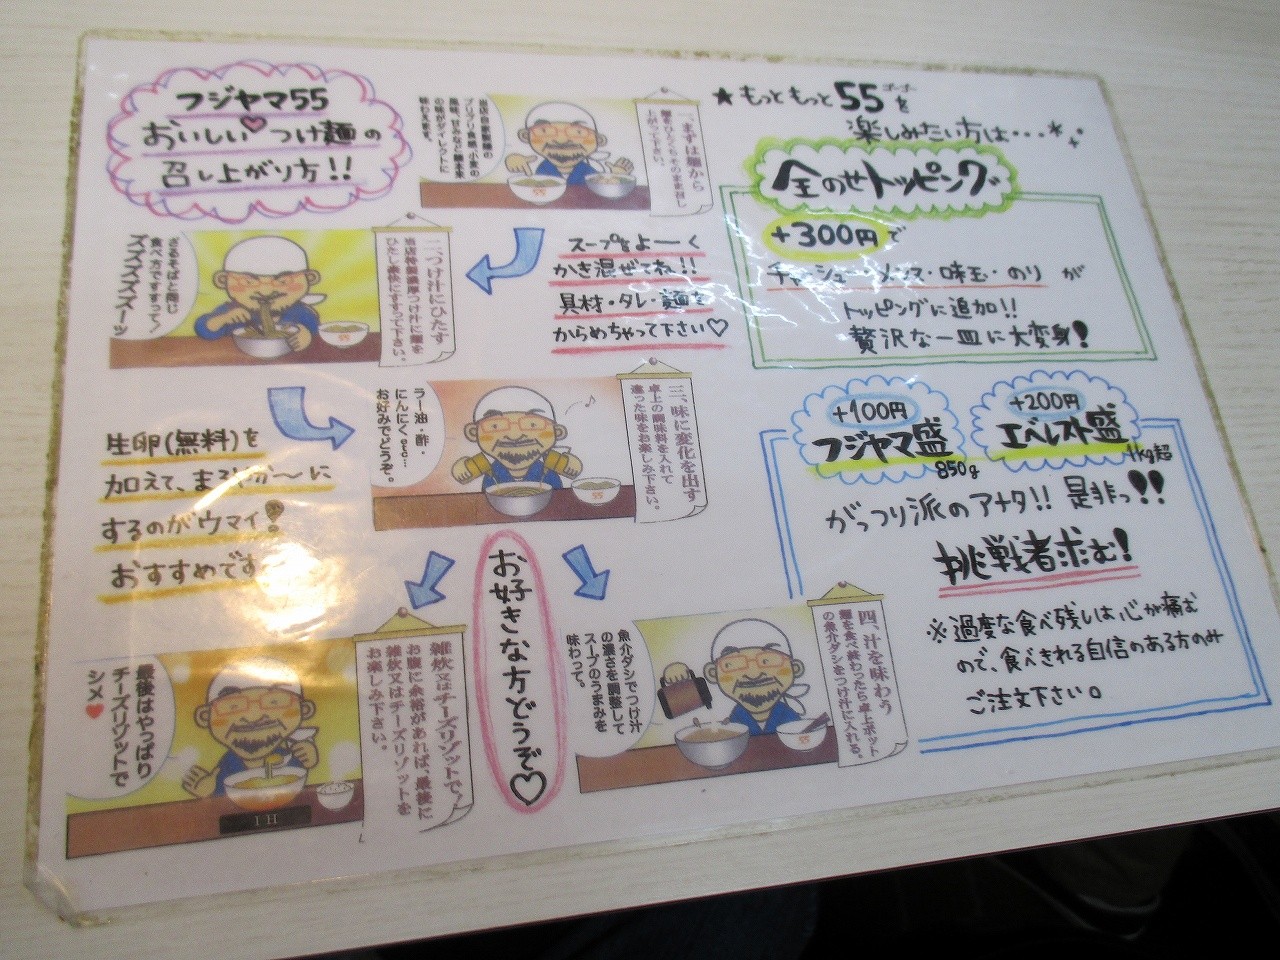 フジヤマ55
おいしい♡つけ麺の
召し上がり方!!
一、まずは麺から
麺をひとくちそのまま召し
上がって下さい。
当店自家製麺の
プリプリ食感、小麦の
風味、甘みなど麺本来
の味がダイレクトに
味わえます。
二、つけ汁にひたす
当店特製濃厚つけ汁に麺を
ひたし豪快にすすって下さい。
ざるそばと同じ
食べ方ですすって!
ズズズズズーッ
スープをよーく
かき混ぜてね!!
具材・タレ・麺を
からめちゃって下さい♡
三、味に変化を出す
卓上の調味料を入れて
違った味をお楽しみ下さい。
ラー油・酢・
にんにくetc…
お好みでどうぞ。
生卵(無料)を
加えて、まろやか〜に
するのがウマイ!
おすすめです
お好きな方どうぞ♡
雑炊又はチーズリゾットで
お腹に余裕があれば、最後に
雑炊又はチーズリゾットを
お楽しみ下さい。
最後はやっぱり
チーズリゾットで
シメ♥
IH
四、汁を味わう
麺を食べ終わったら卓上ポット
の魚介ダシをつけ汁に入れる。
魚介ダシでつけ汁
の濃さを調整して
スープのうまみを
味わって。
★もっともっと55を
ゴーゴー
楽しみたい方は・・・
全のせトッピング
+300円で
チャーシュー・メンマ・味玉・のり が
トッピングに追加!!
贅沢な一皿に大変身!
+100円
フジヤマ盛
850g
+200円
エベレスト盛
1kg超
がっつり派のアナタ!! 是非っ!!
挑戦者求む!
※過度な食べ残しは、心が痛む
ので、食べきれる自信のある方のみ
ご注文下さい。